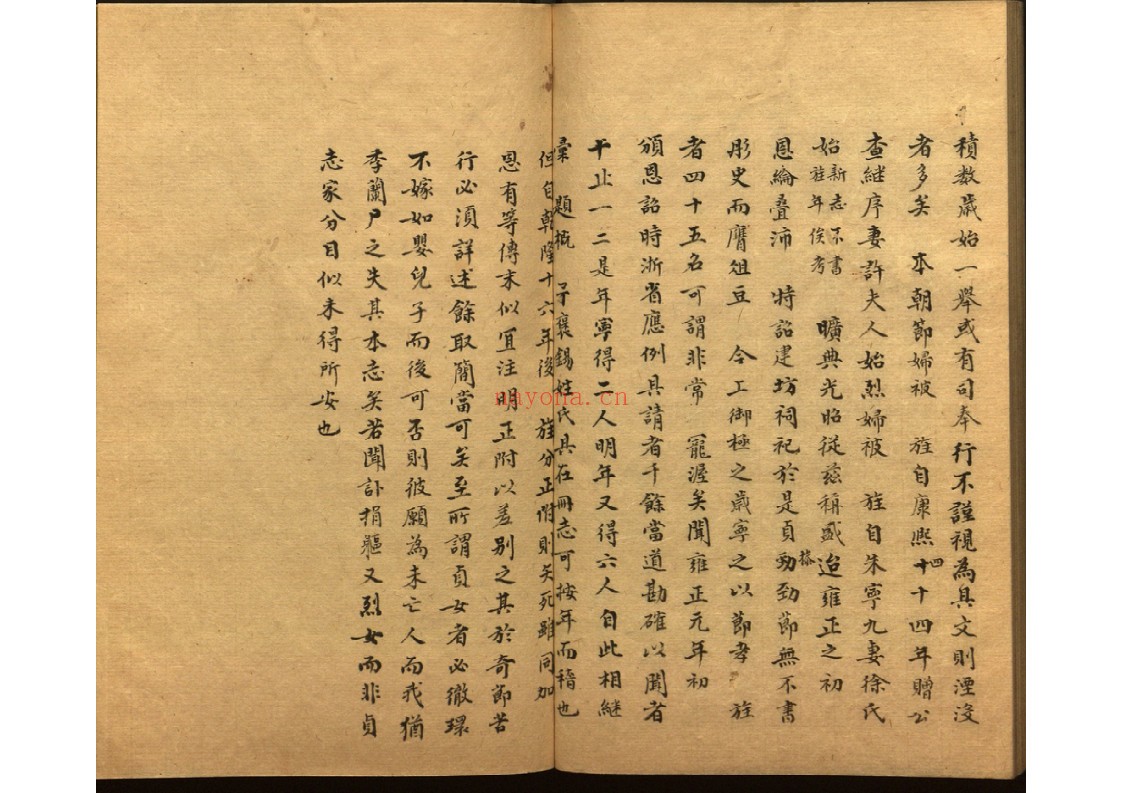 積数歳始一舉或有司奉行不謹視為具文則湮没
者多矣 本朝節婦被 旌自康熙四十十四年贈公
查継序妻許夫人始烈婦被 旌自朱寧九妻徐氏
始新志不書旌年俟考 曠典光昭從茲稱盛迨雍正之初
恩綸叠沛 特詔建坊祠祀於是貞勁劲節無不書
彤史而膺俎豆 今上御極之歳寧之以節孝 旌
者四十五名可謂非常 寵渥矣聞雍正元年初
頒恩詔時浙省應例具請者千餘當道勘確以聞者
干止一二是年寧得二人明年又得六人自此相継
題 子襄錫姓氏具在冊志可按年而稽也
但自乹隆十六年後 旌分正附則矣死雖同加
恩有等傳末似宜注明正附以差别之其於奇節苦
行必湏詳述餘取簡當可矣至所謂貞女者必徹環
不嫁如嬰兒子而後可否則彼願為未亡人而我猶
季蘭尸之失其本志矣若聞訃捐軀又烈女而非貞
志家分目似未得所安也
nayona.cn